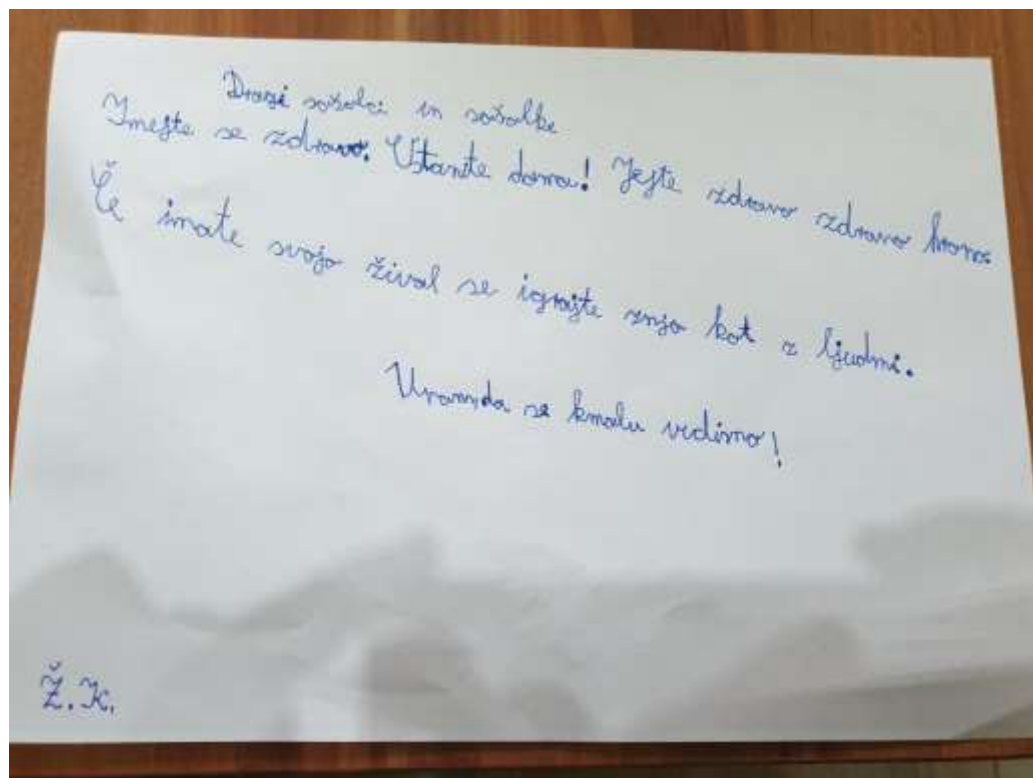 Dragi sošolci in sošolke
Imejte se zdravo. Ustanite doma! Jejte zdravo zdravo hrano.
Če imate svojo žival se igrajte znjo kot z ljudmi.
Upam,da se kmalu vidimo!
Ž.K.